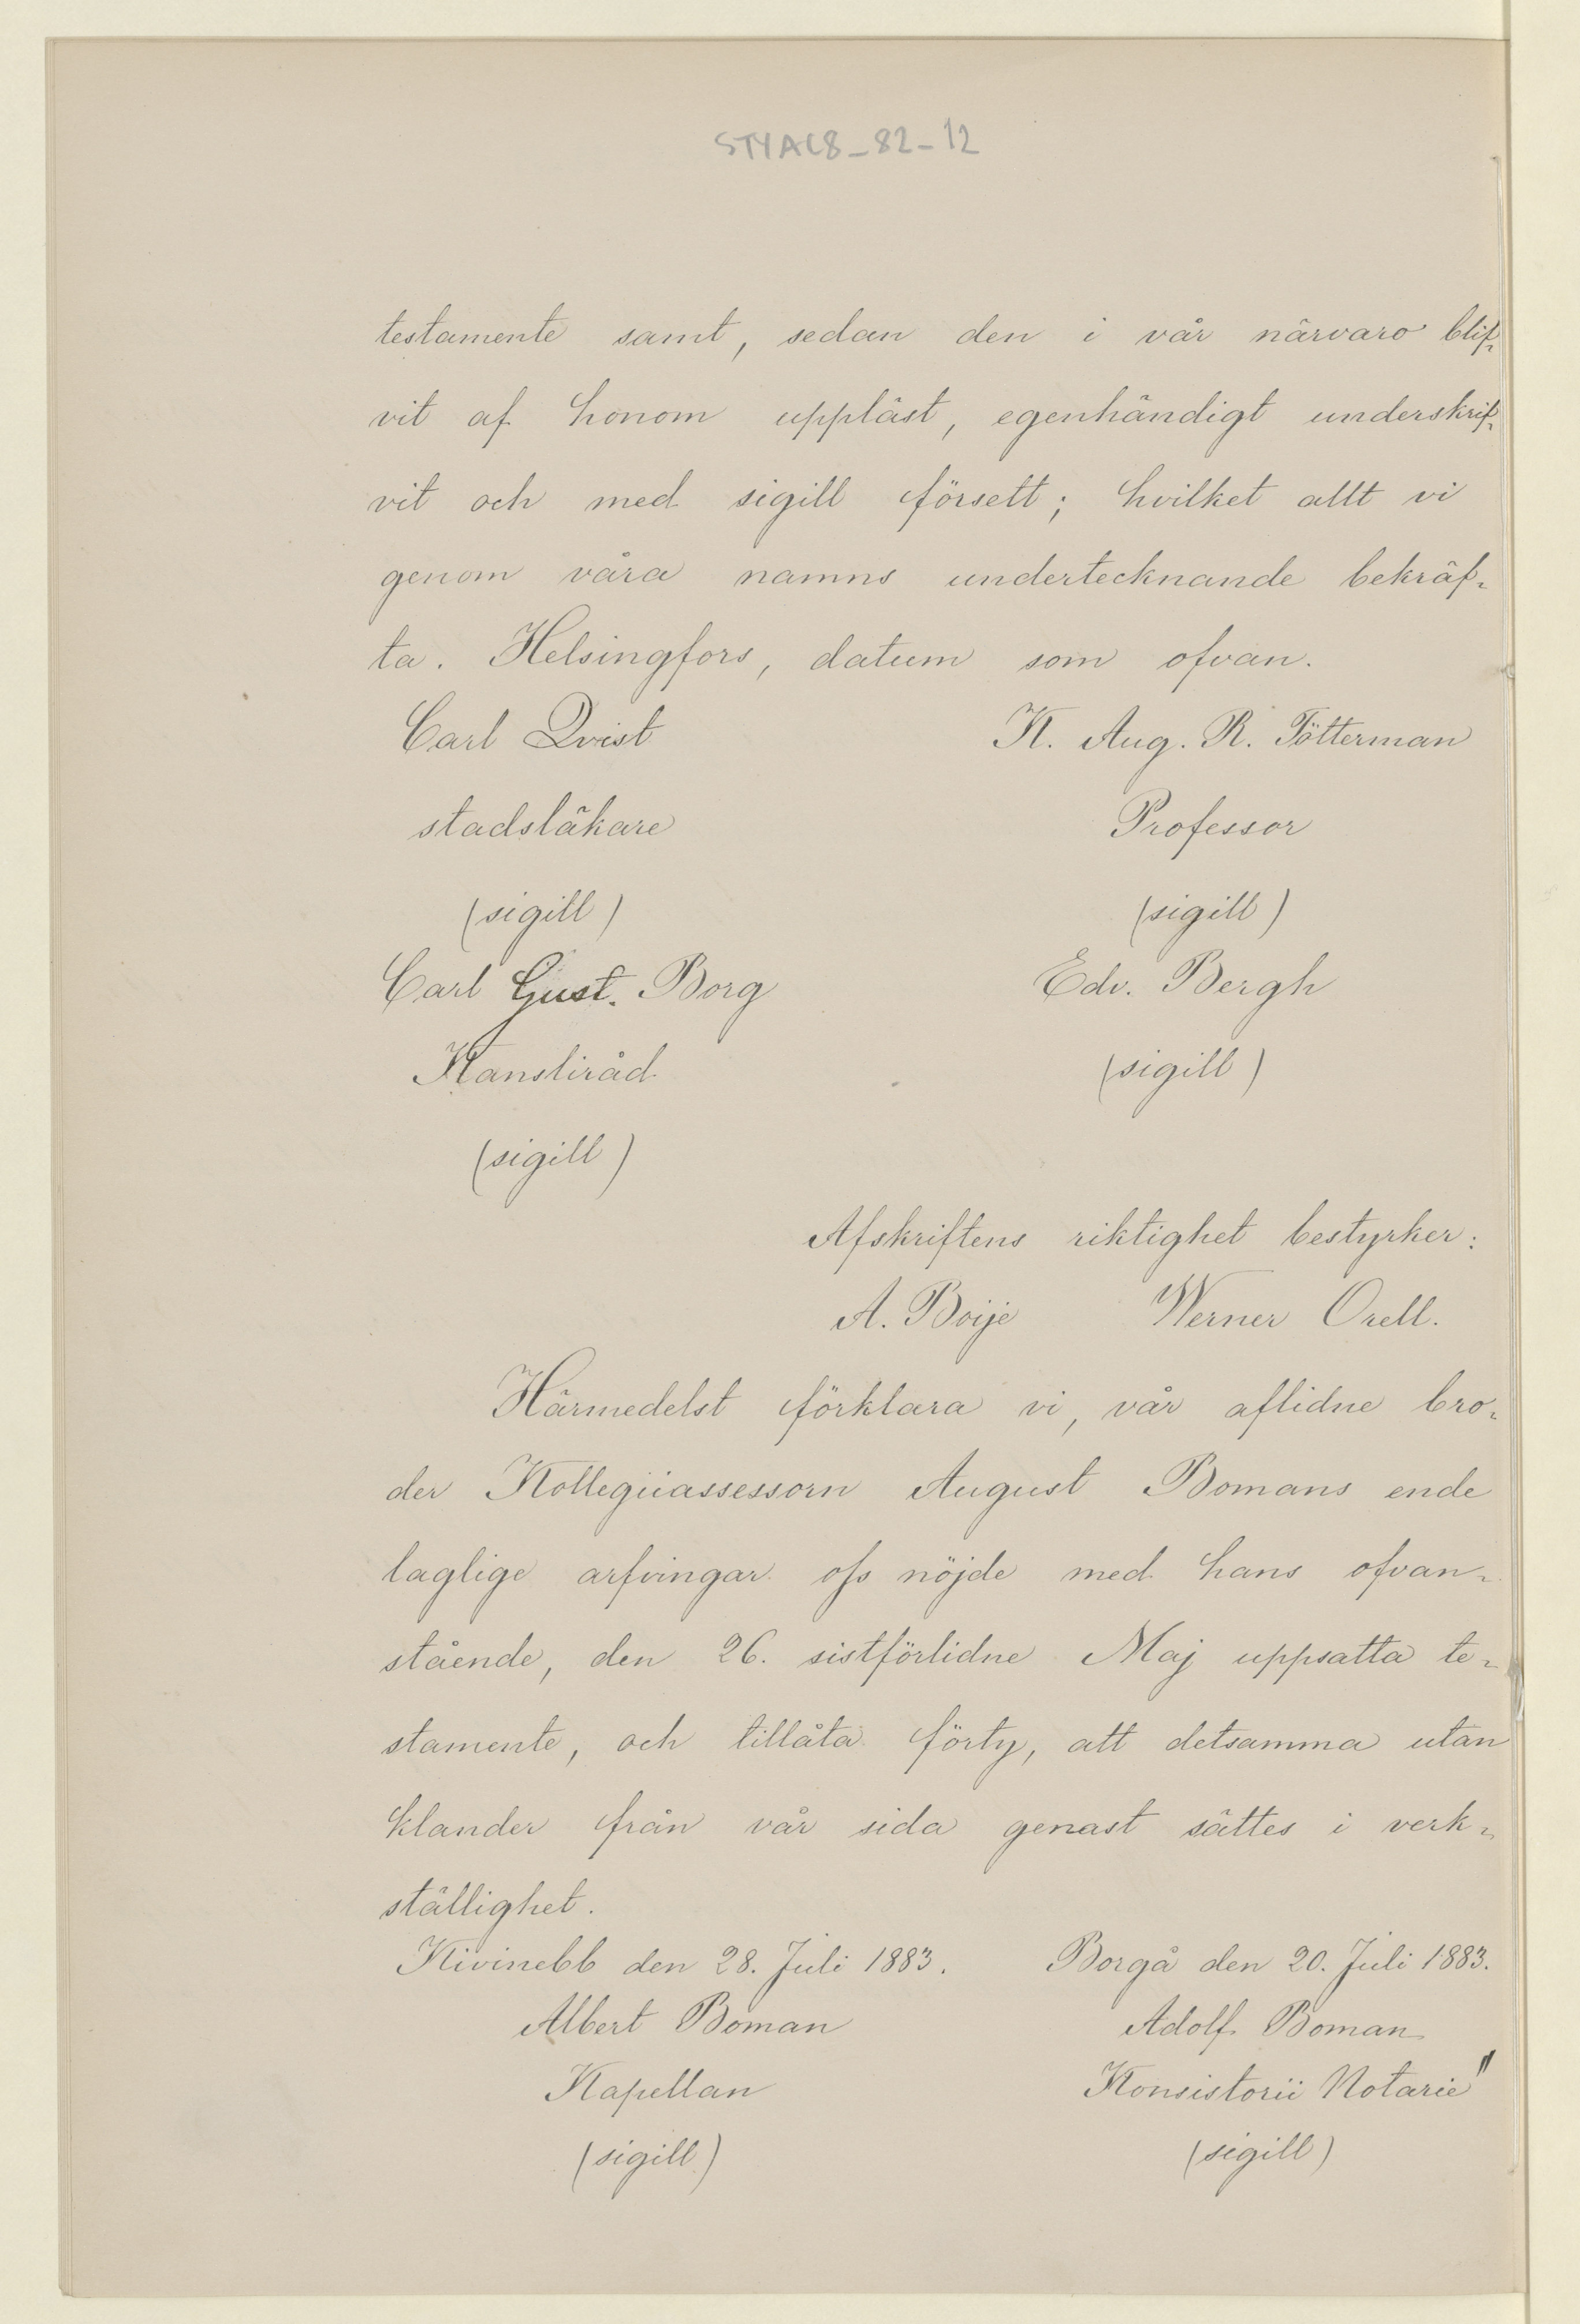 STYAC8_82-12
testamente samt, sedan den i vår närvaro blif-
vit af honom uppläst, egenhändigt underskrif-
vit och med sigill försett; hvilket allt vi
genom våra namns undertecknande bekräf-
ta. Helsingfors, datum som ofvan.
Carl Qvist K. Aug. R. Tötterman
stadsläkare Professor
(sigill) (sigill)
Carl Gust. Borg Edv. Bergh
Kansliråd (sigill)
(sigill)
Afskriftens riktighet bestyrker:
A. Boije Werner Orell.
Härmedelst förklara vi, vår aflidne bro-
der Kollegiiassessorn August Bomans ende
laglige arfvingar oss nöjde med hans ofvan-
stående, den 26. sistförlidne Maj uppsatta te-
stamente, och tillåta förty, att detsamma utan
klander från vår sida genast sättes i verk-
ställighet.
Kivinebb den 28. Juli 1883. Borgå den 20. Juli 1883.
Albert Boman Adolf Boman
Kapellan Konsistorii Notarie"
(sigill) (sigill)